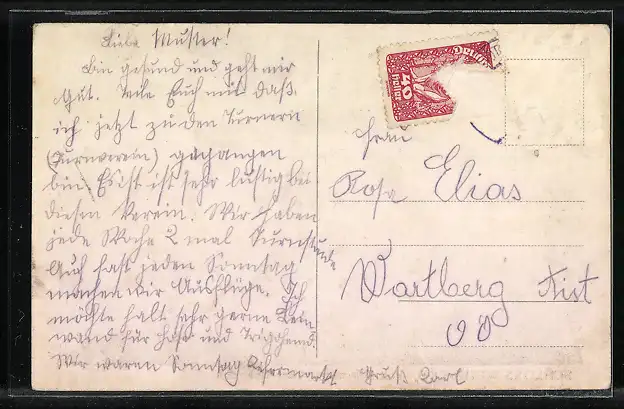 Liebe Mutter!
Bin gesund und geht mir
Gut. Teile Euch mit daß
ich jetzt zu den Turnern
(Turnverein) gegangen
bin. Es ist sehr lustig bei
diesen Verein. Wir haben
jede Woche 2 mal Turnstunde
Auch fast jeden Sonntag
machen wir Ausflüge. Ich
möchte halt sehr gerne Lein
wand für Hose und
Wir waren Sonntag
Gruß Karl
40
Heller
Deutsch
Frau
Rosa Elias
Wartberg Aist
OÖ